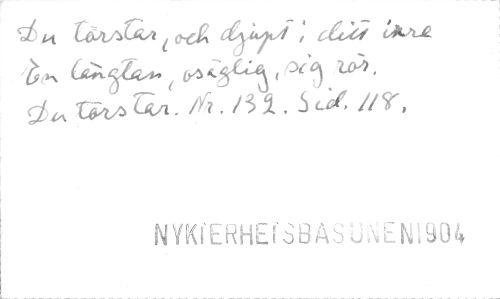 Du törstar, och djupt i ditt inre
En längtan, osäglig, sig rör.
Du törstar. Nr. 132. Sid. 118.
NYKTERHETSBASUNEN 1904